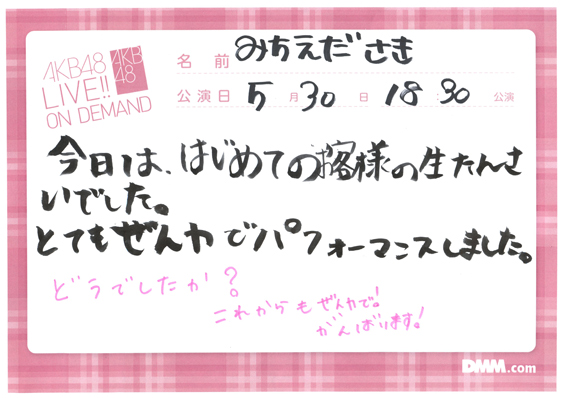 AKB48
LIVE!!
ON DEMAND
AKB
48
名前 みちえださき
公演日 5月30日 18:30 公演
今日は、はじめてのお客様の生たんさ
いでした。
とてもぜんカでパフォーマンスしました。
どうでしたか?
これからもぜんカで!
がんばります!
DMM.com